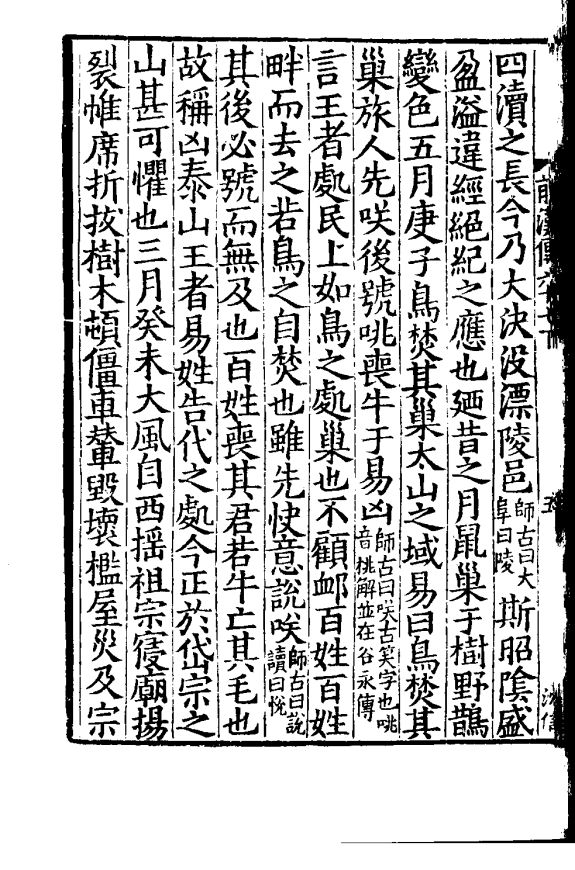 四瀆之長今乃大決沒漂陵邑師古曰大阜曰陵斯昭陰盛
盈溢違經絕紀之應也廼昔之月鼠巢于樹野鵲
變色五月庚子鳥焚其巢太山之域易曰鳥焚其
巢旅人先咲後號咷喪牛于易凶師古曰咲古笑字也咷音桃解並在谷永傳
言王者處民上如鳥之處巢也不顧衈百姓百姓
畔而去之若鳥之自焚也雖先快意說咲師古曰說讀曰悅
其後必號而無及也百姓喪其君若牛亡其毛也
故稱凶泰山王者易姓告代之處今正於岱宗之
山甚可懼也三月癸未大風自西搖祖宗寑廟揚
裂帷席折拔樹木頓僵車輦毀壞檻屋災及宗